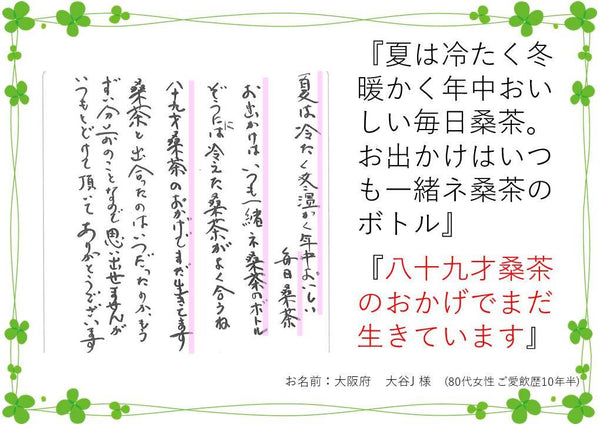 夏は冷たく冬温かく年中おいしい
毎日桑茶
お出かけはいつも一緒ネ桑茶のボトル
ぞうにには冷えた桑茶がよく合うね
八十九才桑茶のおかげでまだ生きてます
桑茶と出合ったのはいつだったのかもう
ずい分前のことなので思い出せませんが
いつもとどけて頂いてありがとうございます
『夏は冷たく冬
暖かく年中おい
しい毎日桑茶。
お出かけはいつ
も一緒ネ桑茶の
ボトル』
『八十九才桑茶
のおかげでまだ
生きています』
お名前：大阪府　大谷J 様　（80代女性 ご愛飲歴10年半）